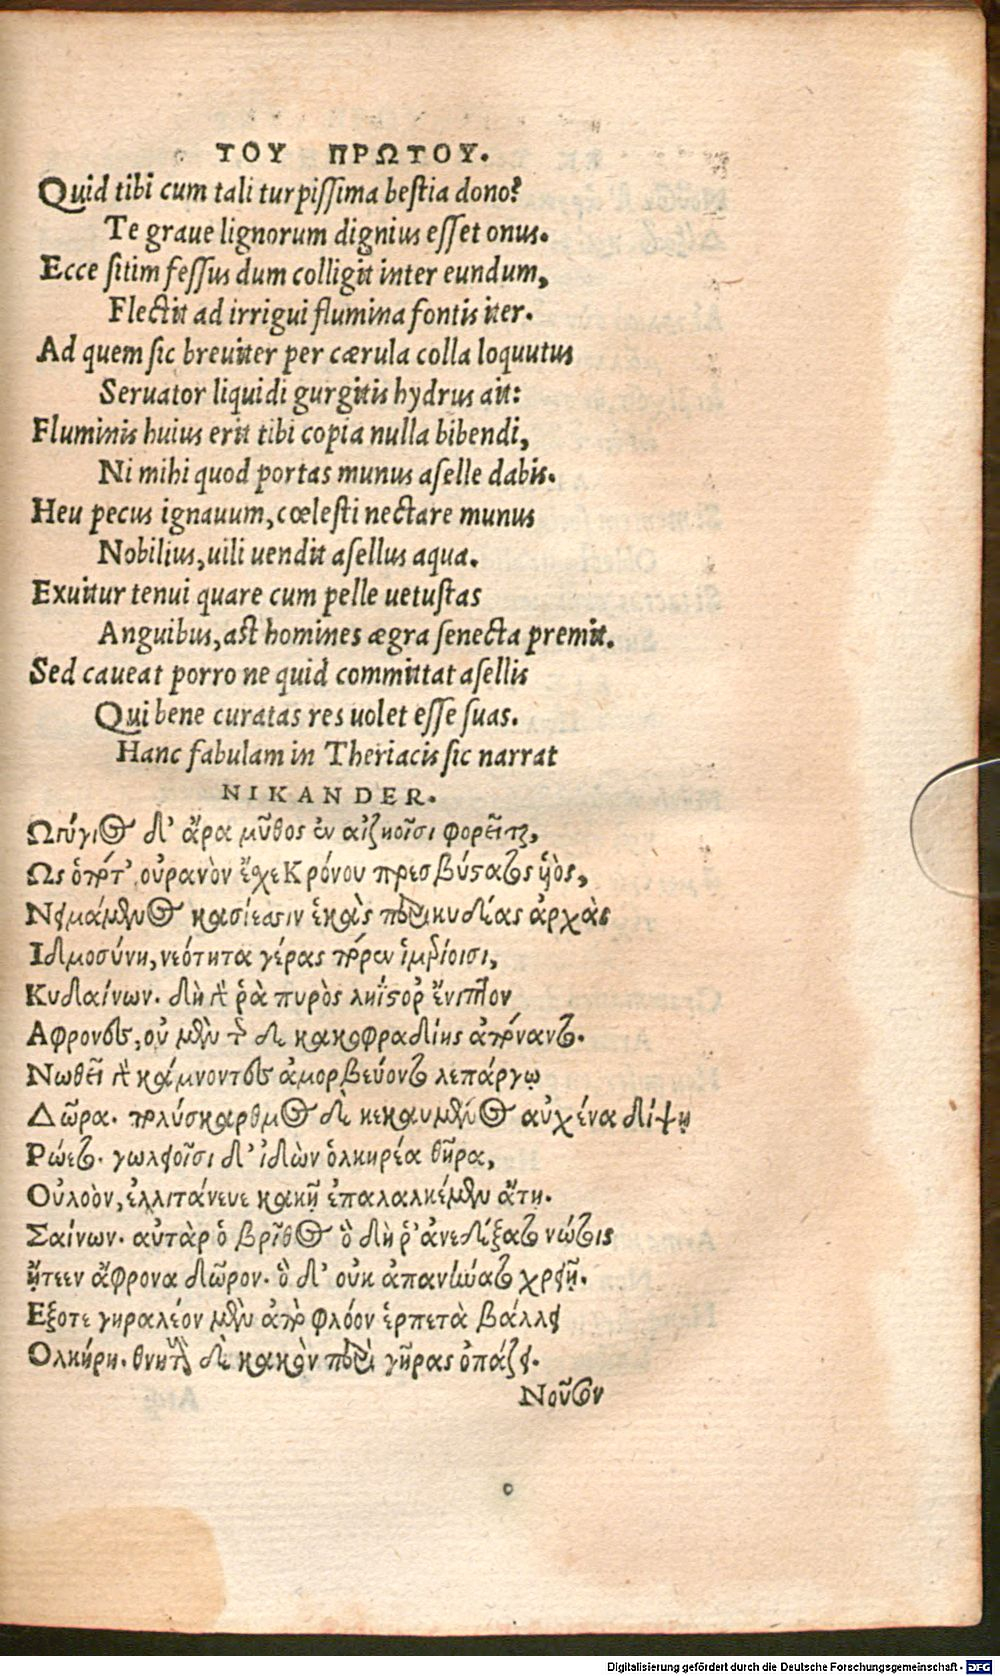 ΤΟΥ ΠΡΩΤΟΥ.
Quid tibi cum tali turpissima bestia dono?
Te graue lignorum dignius esset onus.
Ecce sitim fessus dum colligit inter eundum,
Flectit ad irrigui flumina fontis iter.
Ad quem sic breuiter per cærula colla loquutus
Seruator liquidi gurgitis hydrus ait:
Fluminis huius erit tibi copia nulla bibendi,
Ni mihi quod portas munus aselle dabis.
Heu pecus ignauum, cœlesti nectare munus
Nobilius, uili uendit asellus aqua.
Exuitur tenui quare cum pelle uetustas
Anguibus, ast homines ægra senecta premit.
Sed caueat porro ne quid committat asellis
Qui bene curatas res uolet esse suas.
Hanc fabulam in Theriacis sic narrat
NIKANDER.
Ωγύγιος δ' ἄρα μῦθος ἐν αἰζηοῖσι φορεῖται,
Ως ὁπότ' οὐρανὸν ἔχε Κρόνου πρεσβύςατος υἱὸς,
Νειμάμενος κασίεσσιν ἑκὰς περικυδέας ἀρχὰς
Ιδμοσύνη, νεότητα γέρας πόρεν ἡμερίοισι,
Κυδαίνων. δὴ γὰρ ῥὰ πυρὸς ληΐςορ ἔνιπτον
Αφρονες, οὐ μὲν τ δε κακοφραδίης ἀπόναντο.
Νωθεῖ γὰρ κάμνοντες ἀμορβεύοντο λεπάργῳ
Δῶρα. πολύσκαρθμος δὲ κεκαυμένος αὐχένα δίψῃ
Ρώετο. γωλειοῖσι δ' ἰδὼν ὁλκηρέα θῆρα,
Οὐλοὸν, ἐλλιτάνευε κακῇ ἐπαλαλκέμεν ἄτῃ.
Σαίνων. αὐτὰρ ὁ βρῖθος ὃ δή ῥ' ἀνεδέξατο νώτοις
ᾔτεεν ἄφρονα δῶρον. ὃ δ' οὐκ ἀπανήνατο χρειῇ.
Εξοτε γηραλέον μὲν ἀπὸ φλόον ἑρπετὰ βάλλει
Ολκήρη. θνητοὺς δὲ κακὸν περὶ γῆρας ὀπάζει.
Νοῦσον
Digitalisierung gefördert durch die Deutsche Forschungsgemeinschaft - DFG